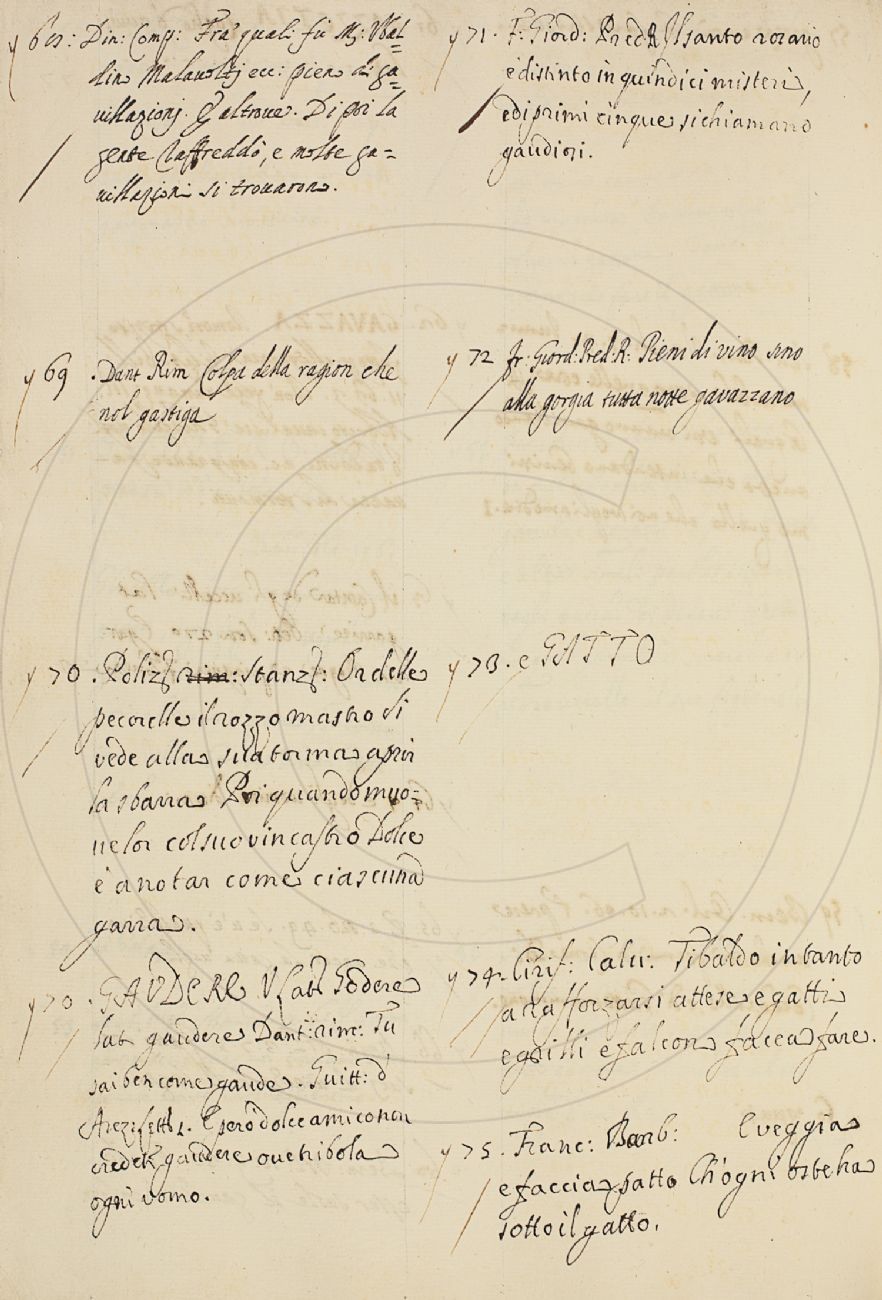 y 68: Din: Comp: Fra' quali fù M: Ubal=
din Malavoltj ecc: pieno di ga=
villazionj. E altrove. Di poi la
gente raffreddò, e molte ga=
villazioni si trovarono.
y 69 . Dant Rim Colpa della ragion che
nol gastiga
y 70 . Poliz: rim: Stanz: Or delle
pecorelle il rozzo mastro si
vede alla sua torma aprir
la sbarra Poi quando muo=
ve lor col suo vincastro Dolce
è a notar come ciascuna
garra.
y 70 . GAUDERE V. Godere
lat. gaudere Dant: rim: Tu
sai ben come gaude. Guitt: d
Arezz: lett: 1. E però dolce amico non
credete gaudere ove tribola
ogni uomo.
y 71 . F: Giord: Pred R Il santo rosario
e distinto in quindici misteri,
ed i primi cinque si chiamano
gaudiosi.
y 72 Fr. Giord: Pred: R: Pieni di vino sino
alla gorgia tutta notte gavazzano
y 73 . e GATTO
y 74 . Cirif: Calv: Tibaldo intanto
a rafforzarsi attese e gatti
e grilli e falcon facea fare.
y 75 . Franc: Barb: E veggia
e faccia fatto Ch'ogni oste ha
sotto il gatto.